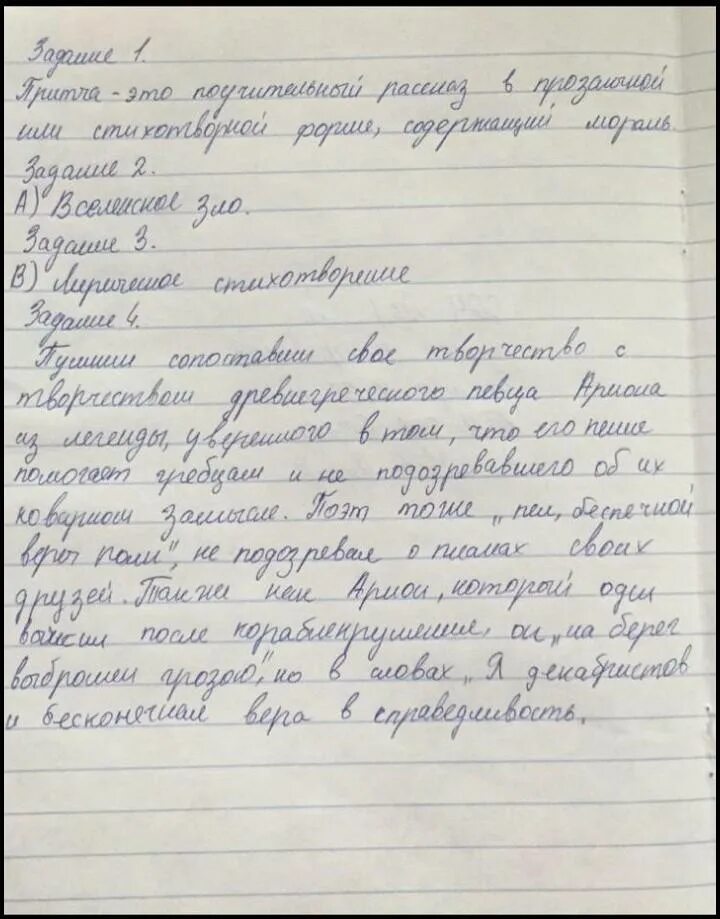 Задание 1.
Притча - это поучительный рассказ в прозаичной
или стихотворной форме, содержащий мораль.
Задание 2.
А) Вселенское зло.
Задание 3.
В) Лиричное стихотворение
Задание 4.
Пушкин сопоставил свое творчество с
творчеством древнегреческого певца Ариона
из легенды, уверенного в том, что его пение
помогает гребцам и не подозревавшего об их
коварном замысле. Поэт тоже "пел, беспечной
веры полн", не подозревал о планах своих
друзей. Так же как Арион, который один
выжил после кораблекрушения, он "на берег
выброшен грозою", но в словах "Я декабристов
и бесконечная вера в справедливость.